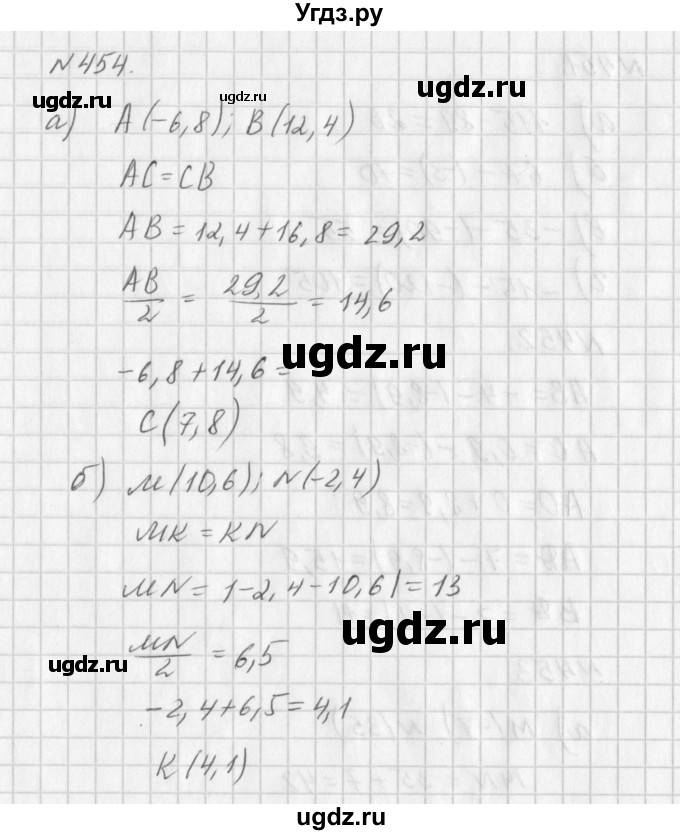 Угдз.ру
№454.
ugdz.ru
ugdz.ru
а) A(-6,8); B(12,4)
AC=CB
AB = 12,4+16,8 = 29,2
AB/2 = 29,2/2 = 14,6
ugdz.ru
-6,8+14,6=
C(7,8)
б) M(10,6); N(-2,4)
MK = KN
MN = |-2,4-10,6| = 13
ugdz.ru
ugdz.ru
MN/2 = 6,5
-2,4+6,5=4,1
K(4,1)
ugdz.ru